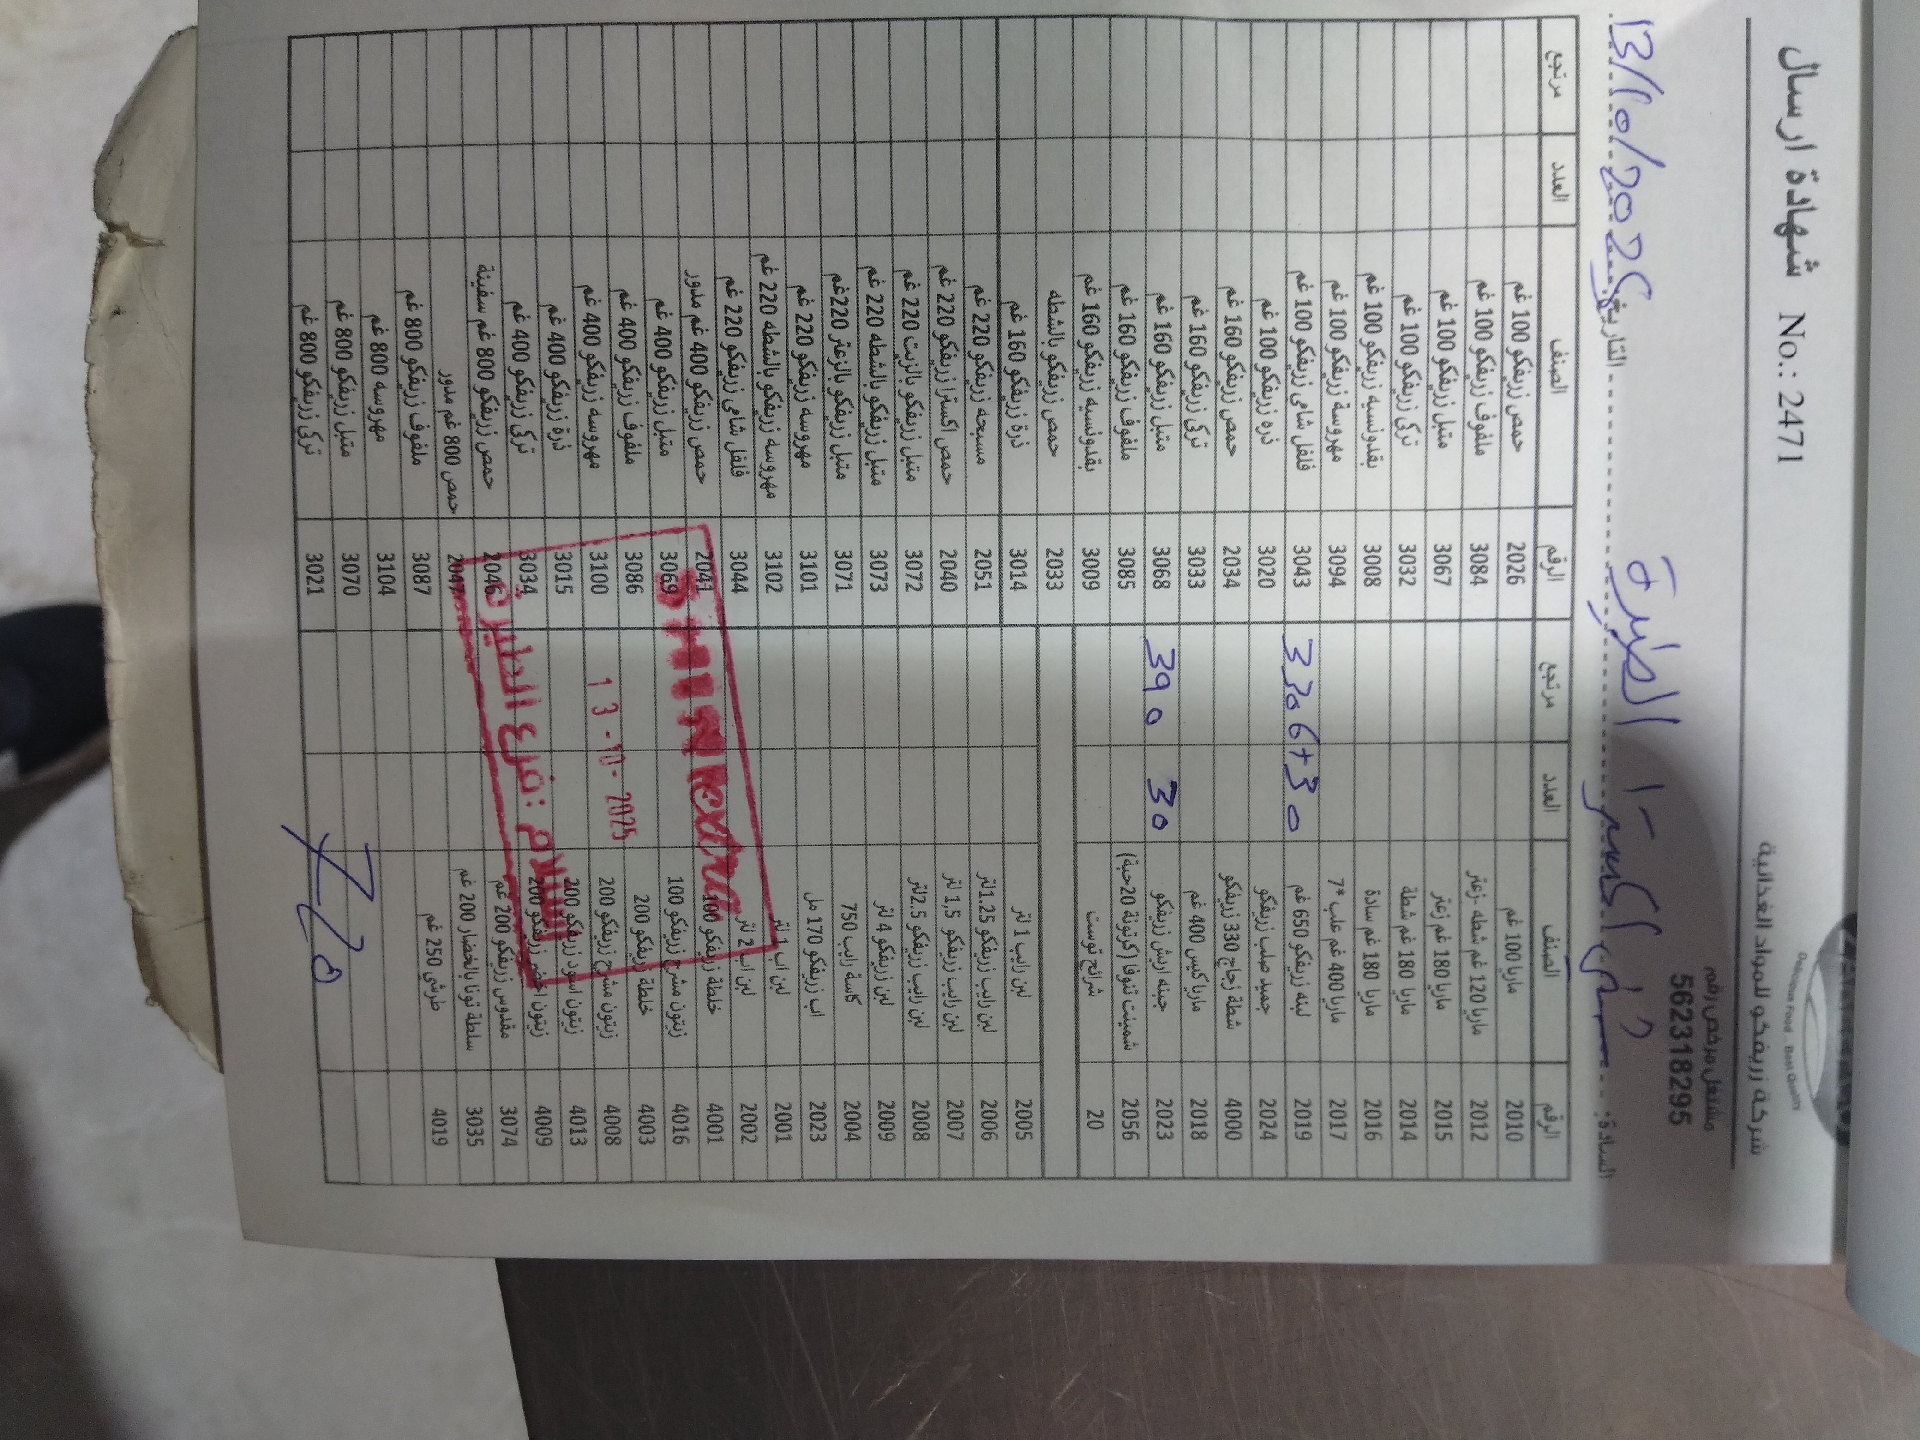 شركة زريفكو للمواد الغذائية
مشتغل مرخص رقم
562318295
شهادة ارسال No.: 2471
السادة: الطيرة
التاريخ 13/10/2025
الرقم الصنف العدد مرتجع الرقم الصنف العدد مرتجع
2010 ماريا 100 غم 2026 حمص زريفكو 100 غم
2012 ماريا 120 غم شطه -زعتر 3084 ملفوف زريفكو 100 غم
2015 ماريا 180 غم زعتر 3067 متبل زريفكو 100 غم
2014 ماريا 180 غم شطة 3032 تركي زريفكو 100 غم
2016 ماريا 180 غم سادة 3008 بقدونسية زريفكو 100 غم
2017 ماريا 400 غم علب *7 3094 مهروسة زريفكو 100 غم
2019 لبنه زريفكو 650 غم 3043 فلفل شامي زريفكو 100 غم
2024 جميد صلب زريفكو 3020 ذره زريفكو 100 غم
4000 شطة زجاج 330 زريفكو 2034 حمص زريفكو 160 غم
2018 ماريا كيس 400 غم 3033 تركي زريفكو 160 غم
2023 جبنه اريش زريفكو 30 390 3068 متبل زريفكو 160 غم
2056 شمينت تنوفا (كرتونة 20حبة) 3085 ملفوف زريفكو 160 غم
20 شرائح توست 3009 بقدونسيه زريفكو 160 غم
2033 حمص زريفكو بالشطه
2005 لبن رايب 1 لتر 3014 ذرة زريفكو 160 غم
2006 لبن رايب زريفكو 1.25لتر 2051 مسبحه زريفكو 220 غم
2007 لبن رايب زريفكو 1,5 لتر 2040 حمص اكسترا زريفكو 220 غم
2008 لبن رايب زريفكو 2.5لتر 3072 متبل زريفكو بالزيت 220 غم
2009 لبن زريفكو 4 لتر 3073 متبل زريفكو بالشطه 220 غم
2004 كاسة لايب 750 3071 متبل زريفكو بالزعتر 220غم
2023 لاب زريفكو 170 مل 3101 مهروسه زريفكو 220 غم
2001 لبن اب 1 لتر 3102 مهروسه زريفكو بالشطه 220 غم
2002 لبن اب 2 لتر 3044 فلفل شامي زريفكو 220 غم
4001 خلطة زريفكو 100 2041 حمص زريفكو 400 غم مدور
4016 زيتون مشرح زريفكو 100 3069 متبل زريفكو 400 غم
4003 خلطة زريفكو 200 3086 ملفوف زريفكو 400 غم
4008 زيتون مشرح زريفكو 200 3100 مهروسه زريفكو 400 غم
4013 زيتون اسود زريفكو 200 3015 ذرة زريفكو 400 غم
4009 زيتون اخضر زريفكو 200 3034 تركي زريفكو 400 غم
3074 مقدوس زريفكو 200 غم 2046 حمص زريفكو 800 غم سفينة
3035 سلطة تونا بالخضار 200 غم 2047 حمص 800 غم مدور
4019 طرشي 250 غم 3087 ملفوف زريفكو 800 غم
3104 مهروسه 800 غم
3070 متبل زريفكو 800 غم
3021 تركي زريفكو 800 غم
extra
13-10-2025
السلام : فرع الطيرة